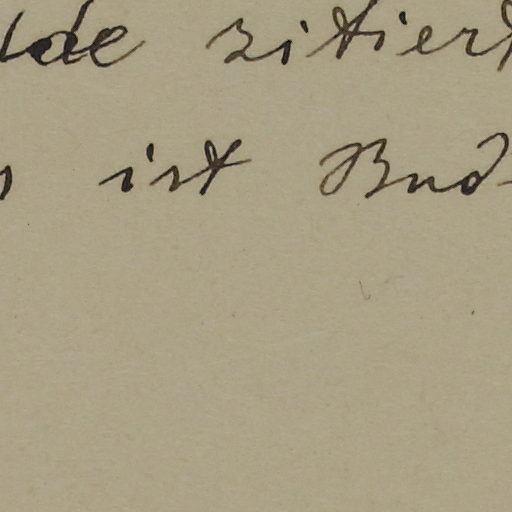 lde zitiert
s ist Bud